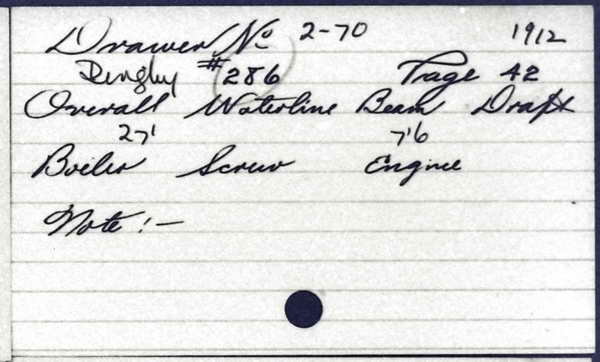 Drawer No 2-70 1912
Dinghy #286 Page 42
Overall Waterline Beam Draft
27' 7'6
Boiler Screw Engine
Note:-